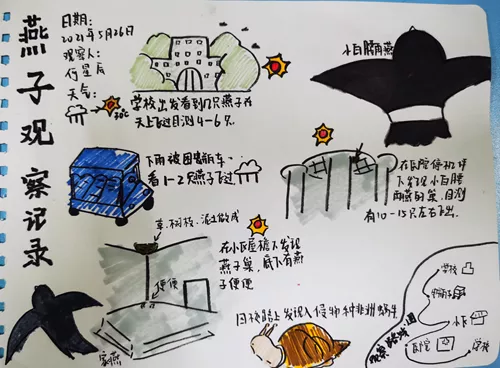 燕子观察记录
日期:
2021年5月26日
观察人:
何星辰
天气:
30℃
学校出发看到17只燕子在
天上飞过目测4-6只.
小白腰雨燕
下雨被困
看1-2只燕子飞过
下发现小白腰
雨燕的巢,目测
有10-15只左右飞出.
草.树枝.泥土做成
便便
在小区屋檐下发现
燕子巢,底下有燕
子便便
家燕
回校路上发现入侵物种非洲蜗牛
观察路线图
学校
小区
学校